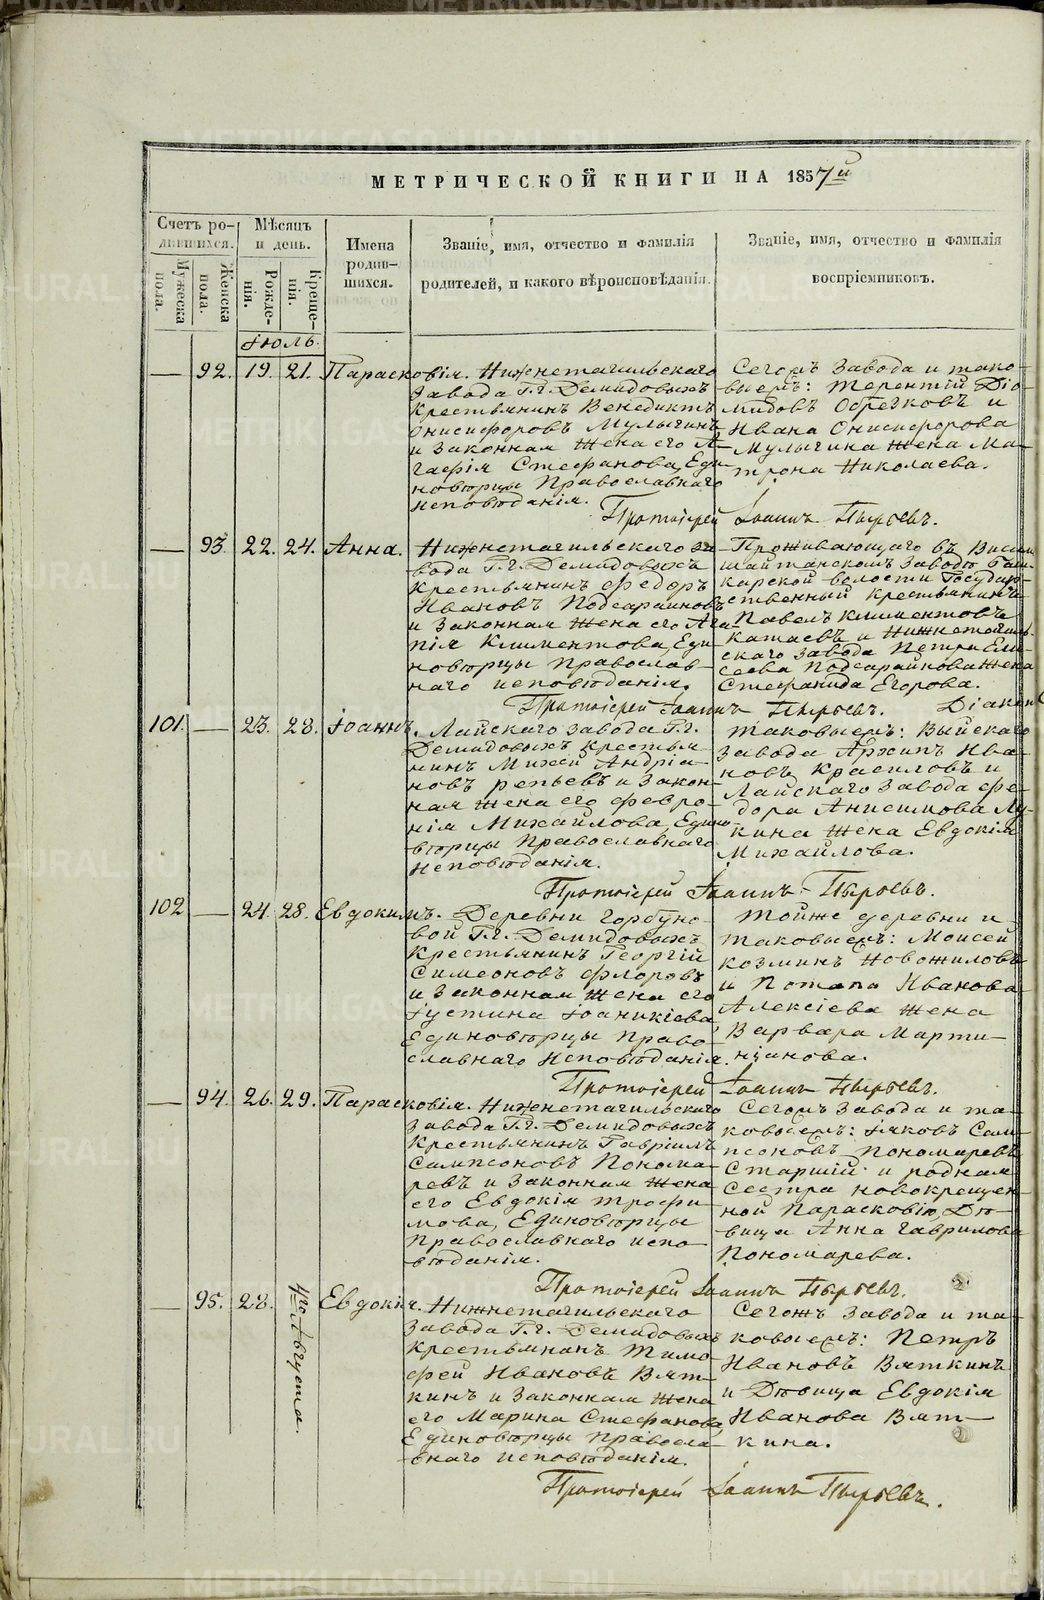 МЕТРИЧЕСКОЙ КНИГИ НА 1857й
Счетъ ро-
дившихся.
Мужеска пола.
Женска пола.
Мѣсяцъ
и день.
Рожде-
нія.
Креще-
нія.
Имена
родив-
шихся.
Званіе, имя, отчество и фамилія
родителей, и какого вѣроисповѣданія.
Званіе, имя, отчество и фамилія
воспріемниковъ.
Іюль
— 92. 19. 21. Парасковія.
Нижнетагильскаго
завода Г.г. Демидовыхъ
крестьянинъ Венедиктъ
Онисифоровъ Мулыгинъ
и законная жена его А-
гафія Стефанова, Еди-
новѣрцы Православнаго
исповѣданія.
Сегожъ завода и тако-
выежъ: Терентій Діо-
мидовъ Обрезковъ и
Ивана Онисифорова
Мулыгина жена Ма-
трона Николаева.
Протоіерей Іоаннъ Пырьевъ.
— 93. 22. 24. Анна.
Нижнетагильскаго за-
вода Г.г. Демидовыхъ
крестьянинъ Федоръ
Ивановъ Подсарайновъ
и законная жена его Ага-
пія Климентова, Еди-
новѣрцы Православ-
наго исповѣданія.
Проживающаго въ Висимо
шайтанскомъ заводѣ
карской волости Государ-
ственный крестьянинъ
Павелъ Климентовъ
Катаевъ и Нижнетагиль-
скаго завода Петра Ели-
сеева Подсарайнова жена
Стефанида Егорова.
Протоіерей Іоаннъ Пырьевъ. Діаконъ
101. — 23. 28. Іоаннъ.
Лайскаго завода Г.г.
Демидовыхъ крестья-
нинъ Михей Андріа-
новъ Репьевъ и закон-
ная жена его Февро-
нія Михайлова, Едино-
вѣрцы Православнаго
исповѣданія.
таковыежъ: Выйскаго
завода Архипъ Ива-
новъ Красиловъ и
Лайскаго завода Фе-
дора Анисимова Лу-
кина жена Евдокія
Михайлова.
Протоіерей Іоаннъ Пырьевъ.
102 — 24. 28. Евдокимъ.
Деревни Горбуно-
вой Г.г. Демидовыхъ
крестьянинъ Георгій
Симеоновъ Флоровъ
и законная жена его
Іустина Іоаникіева,
Единовѣрцы Право-
славнаго исповѣданія.
Тойже деревни и
таковыежъ: Моисей
Козминъ Новожиловъ
и Потапа Иванова
Алексіева жена
Варвара Марти-
ніанова.
Протоіерей Іоаннъ Пырьевъ.
— 94. 26. 29. Парасковія.
Нижнетагильскаго
завода Г.г. Демидовыхъ
крестьянинъ Гавріилъ
Сампсоновъ Понома-
ревъ и законная жена
его Евдокія Трофи-
мова, Единовѣрцы
Православнаго испо-
вѣданія.
Сегожъ завода и та-
ковыежъ: Іяковъ Сам-
псоновъ Пономаревъ
Старшій и родная
сестра новокрещен-
ной Параскевіи, Дѣ-
вица Анна Гаврилова
Пономарева.
Протоіерей Іоаннъ Пырьевъ.
— 95. 28. 4го Августа. Евдокія.
Нижнетагильскаго
завода Г.г. Демидовыхъ
крестьянинъ Тимо-
фей Ивановъ Вят-
кинъ и законная жена
его Марина Стефанова,
Единовѣрцы Правосла-
внаго исповѣданія.
Сегожъ завода и та-
ковыежъ: Петръ
Ивановъ Вяткинъ
и Дѣвица Евдокія
Иванова Вят-
кина.
Протоіерей Іоаннъ Пырьевъ.
METRIKI.GASO-URAL.RU